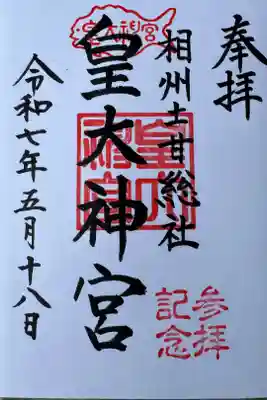 奉拝
相州土甘総社
皇大神宮
令和七年五月十八日
皇大神宮
参拝
記念